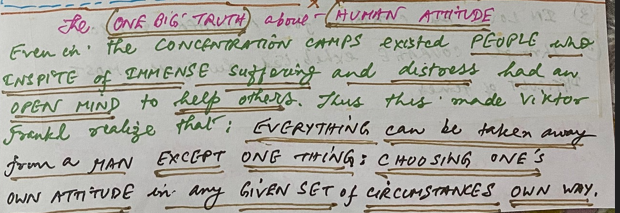 The ONE BIG TRUTH about HUMAN ATTITUDE
Even in the CONCENTRATION CAMPS existed PEOPLE who
INSPITE of IMMENSE suffering and distress had an
OPEN MIND to help others. Thus this made Viktor
Frankl realize that; EVERYTHING can be taken away
from a MAN EXCEPT ONE THING: CHOOSING ONE'S
OWN ATTITUDE in any GIVEN SET of CIRCUMSTANCES OWN WAY.